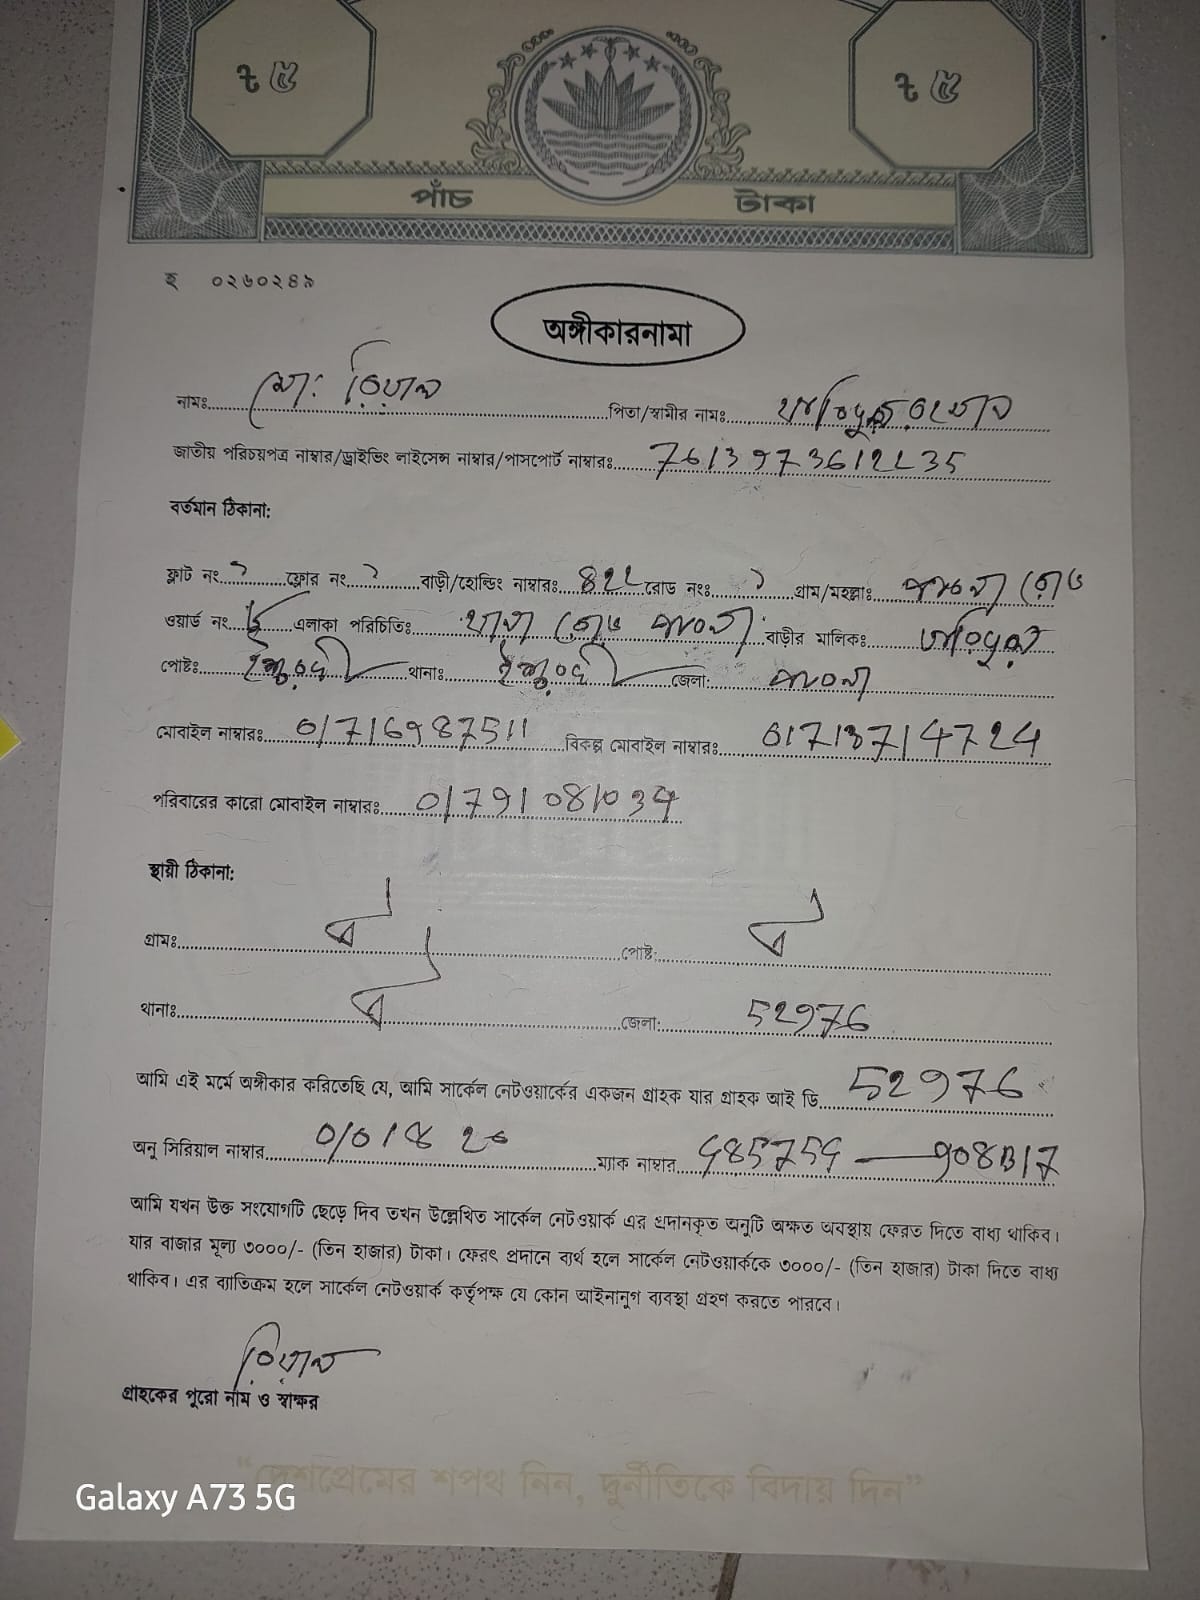 ৳ ৫ ৳ ৫
পাঁচ টাকা
হ ০২৬০২৪৯
অঙ্গীকারনামা
নামঃ মোঃ পিতা/স্বামীর নামঃ
জাতীয় পরিচয়পত্র নাম্বার/ড্রাইভিং লাইসেন্স নাম্বার/পাসপোর্ট নাম্বারঃ
বর্তমান ঠিকানা:
ফ্লাট নং ফ্লোর নং বাড়ী/হোল্ডিং নাম্বারঃ রোড নংঃ গ্রাম/মহল্লাঃ পাবনা রোড
ওয়ার্ড নং এলাকা পরিচিতিঃ থানা রোড পাবনা বাড়ীর মালিকঃ
পোষ্টঃ ঈশ্বরদী থানাঃ ঈশ্বরদী জেলা: পাবনা
মোবাইল নাম্বারঃ বিকল্প মোবাইল নাম্বারঃ
পরিবারের কারো মোবাইল নাম্বারঃ
স্থায়ী ঠিকানা:
গ্রামঃ ঐ পোষ্ট: ঐ
থানাঃ ঐ জেলা: 52976
আমি এই মর্মে অঙ্গীকার করিতেছি যে, আমি সার্কেল নেটওয়ার্কের একজন গ্রাহক যার গ্রাহক আই ডি 52976
অনু সিরিয়াল নাম্বার ম্যাক নাম্বার
আমি যখন উক্ত সংযোগটি ছেড়ে দিব তখন উল্লেখিত সার্কেল নেটওয়ার্ক এর প্রদানকৃত অনুটি অক্ষত অবস্থায় ফেরত দিতে বাধ্য থাকিব।
যার বাজার মূল্য ৩০০০/- (তিন হাজার) টাকা। ফেরৎ প্রদানে ব্যর্থ হলে সার্কেল নেটওয়ার্ককে ৩০০০/- (তিন হাজার) টাকা দিতে বাধ্য
থাকিব। এর ব্যাতিক্রম হলে সার্কেল নেটওয়ার্ক কর্তৃপক্ষ যে কোন আইনানুগ ব্যবস্থা গ্রহণ করতে পারবে।
গ্রাহকের পুরো নাম ও স্বাক্ষর
“দেশপ্রেমের শপথ নিন, দুর্নীতিকে বিদায় দিন”
Galaxy A73 5G